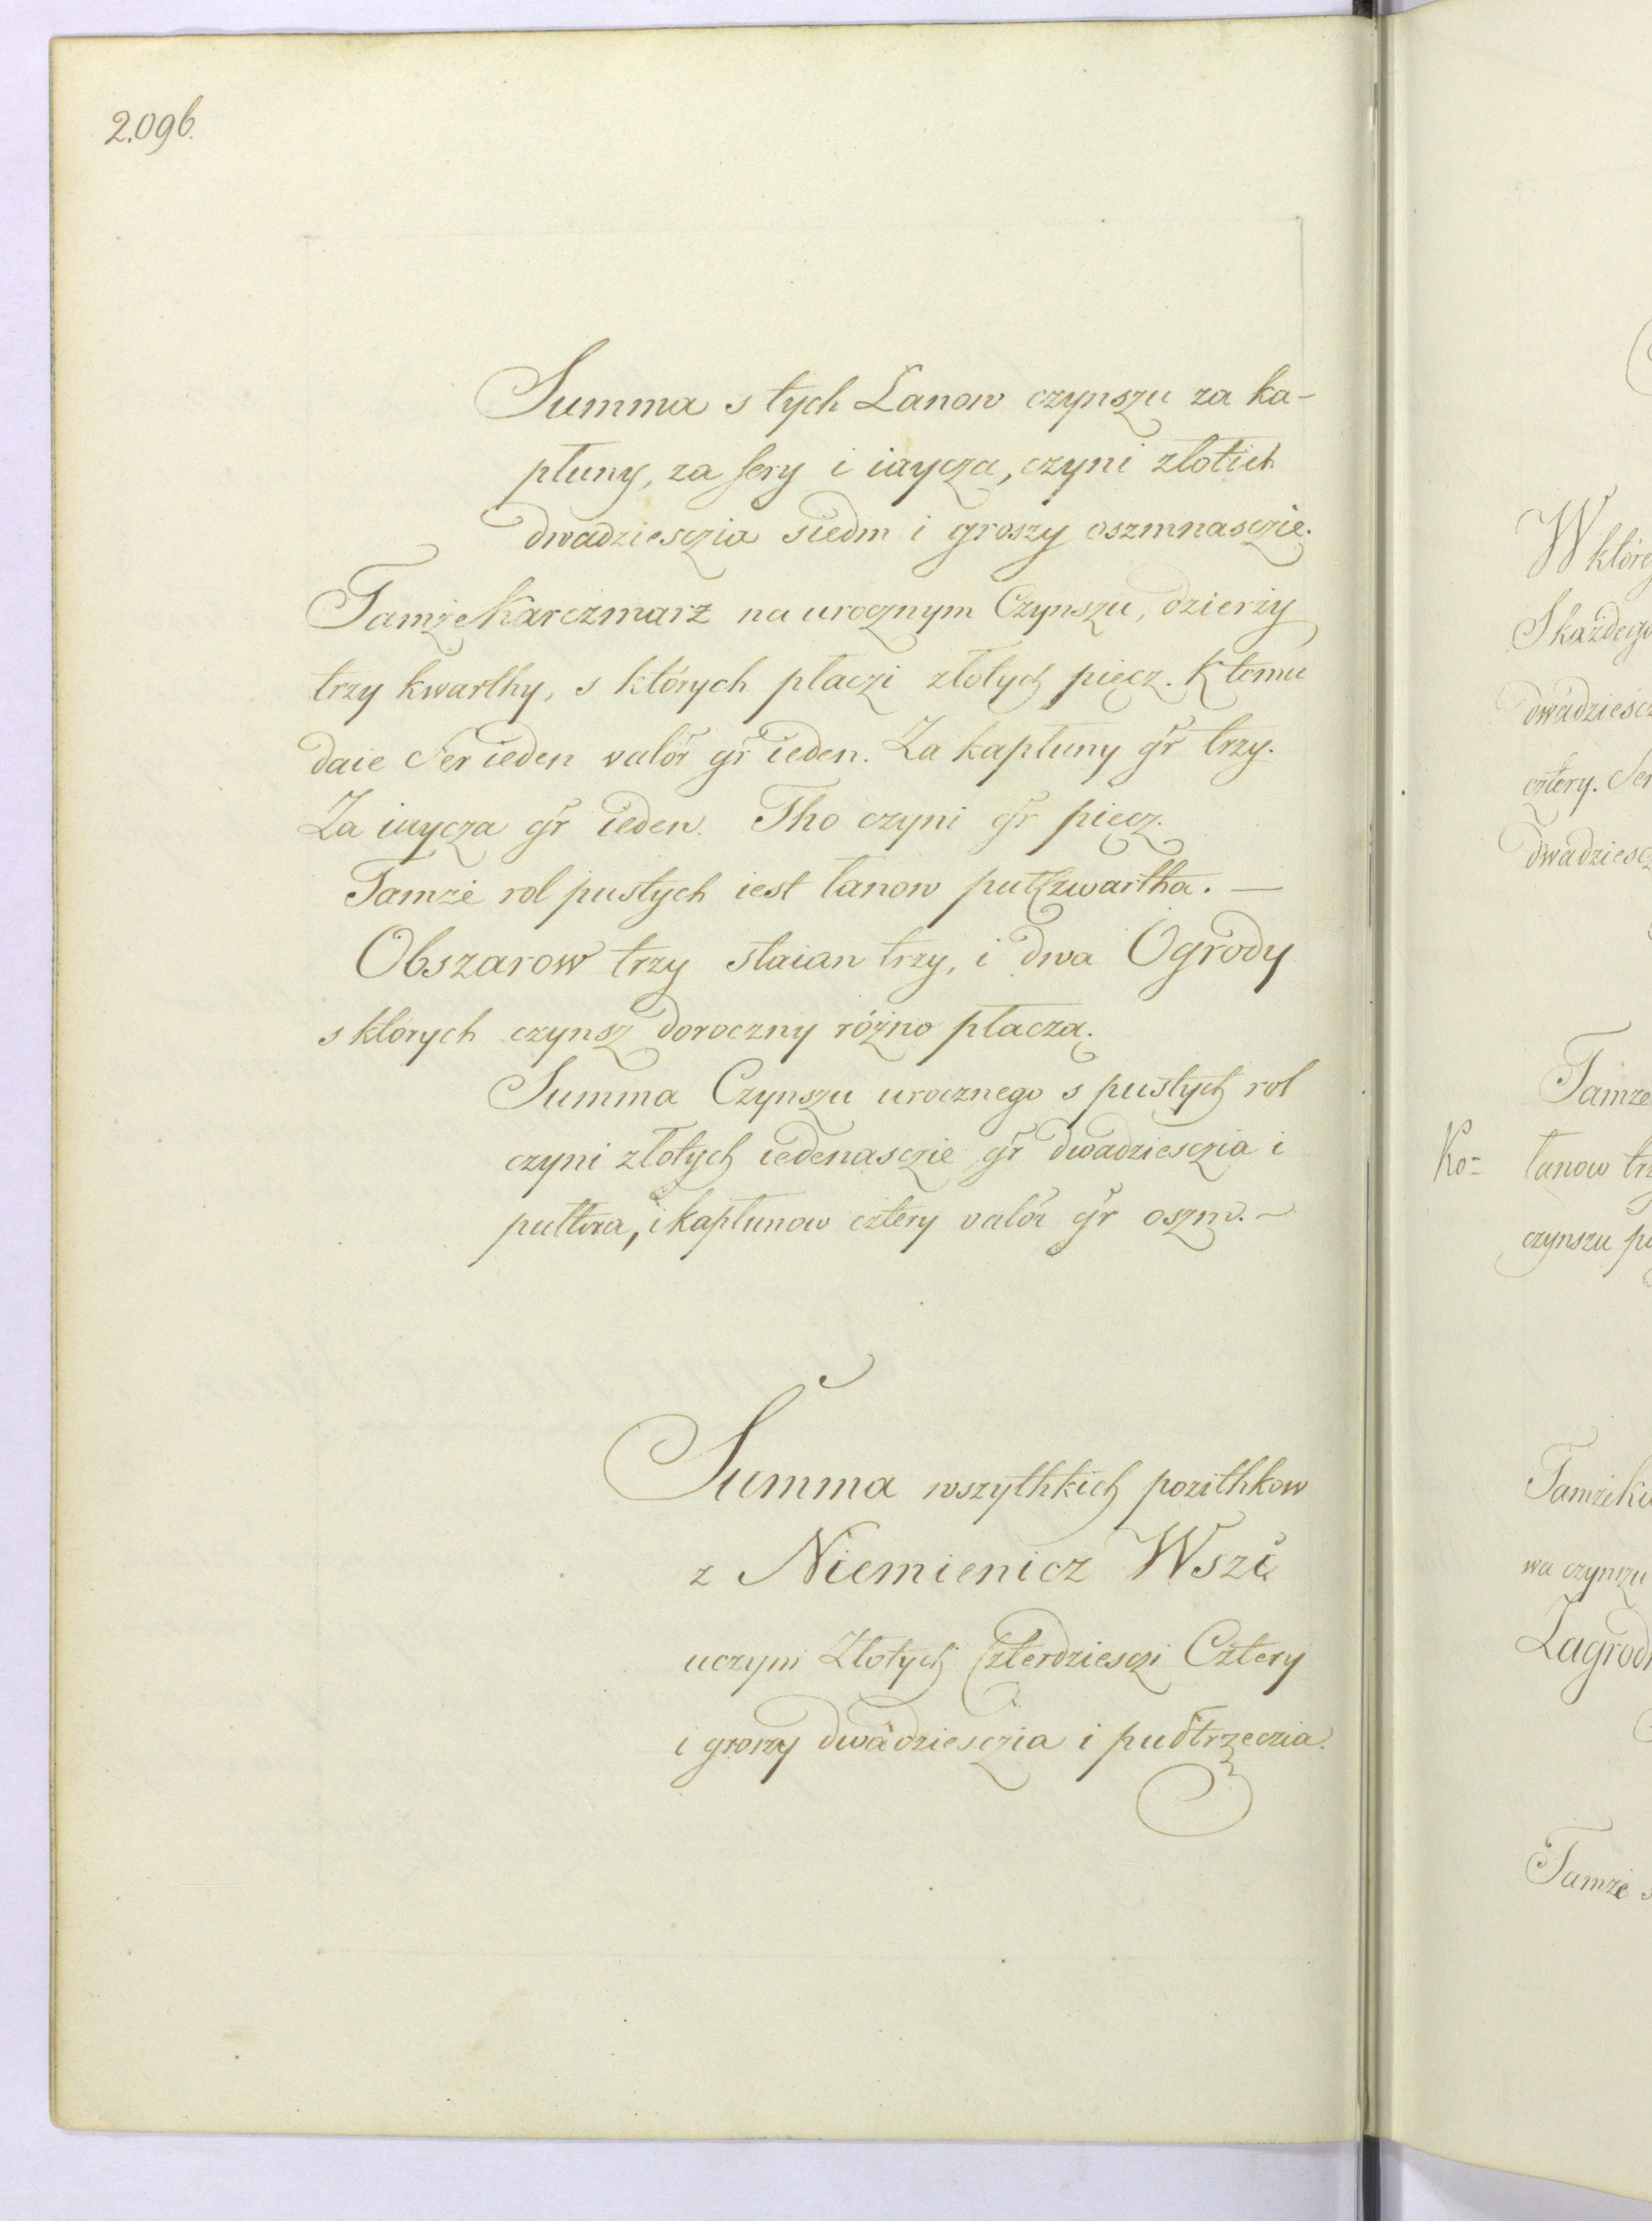 2.096.
Summa s tych Lanow czynszu za ka-
płuny, za sery i iaycza, czyni złotich
dwadziesczia siedm i groszy oszmnasczie.
Tamże Karczmarz na urocznym Czynszu, dzierży
trzy kwarthy, s których płaczi złotych pięcz. K temu
daie Ser ieden valór gr ieden. Za kapłuny gr trzy.
Za iaycza gr ieden. Tho czyni gr pięcz.
Tamże rol pustych iest łanow pułczwartha. —
Obszarow trzy staian trzy, i dwa Ogrody
s ktorych czynsz doroczny różno płaczą.
Summa Czynszu urocznego s pustych rol
czyni złotych iedenasczie gr dwadziesczia i
pułtora, i kapłunow cztery valór gr oszm. —
Summa wszythkich pozithkow
z Niemienicz Wszi
uczyni Złotych Czterdziesczi Cztery
i groszy dwadziesczia i pułtrzeczia.
W które
S każdego
dwadziescz
cztery. Ser
dwadziescz
Tamże
Ko- łanow trz
czynszu
wa czynszu
Tamże s